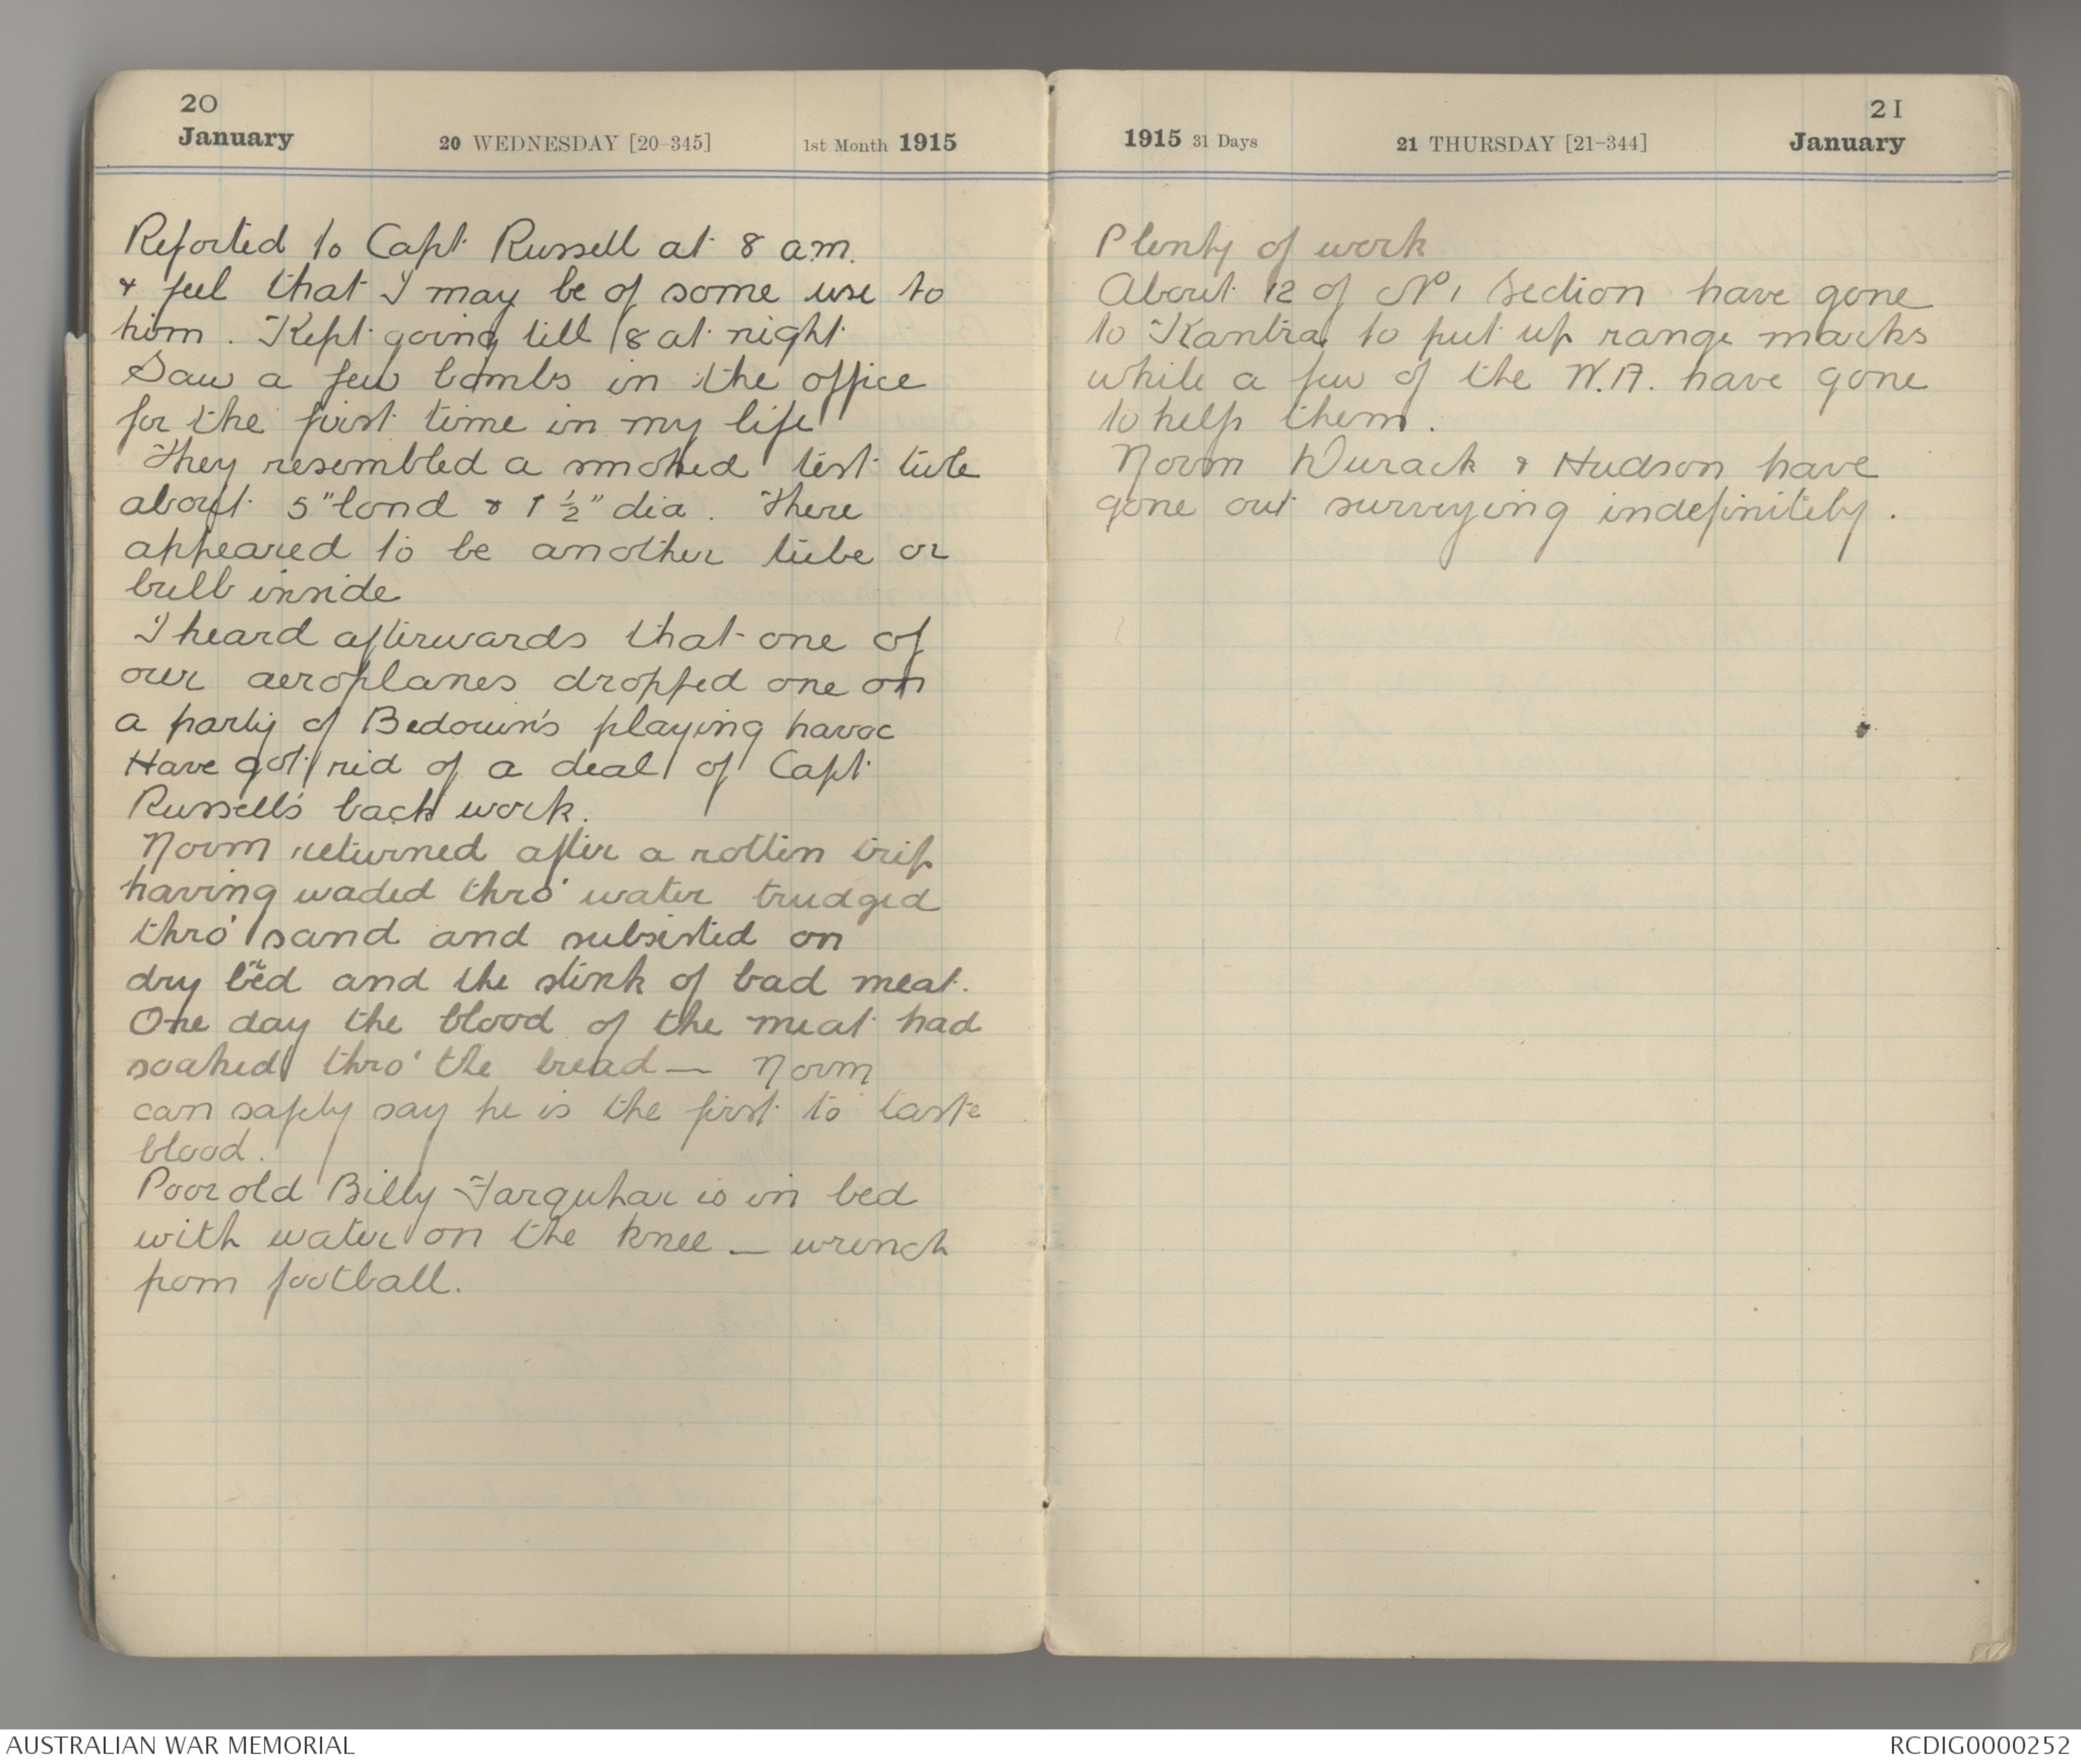 20
January
20 WEDNESDAY [20-345]
1st Month 1915
Reported to Capt Russell at 8 a.m.
& feel that I may be of some use to
him. Kept going till 8 at night
Saw a few bombs in the office
for the first time in my life
They resembled a smoked test tube
about 5" lond & 1 1/2" dia. There
appeared to be another tube or
bulb inside
I heard afterwards that one of
our aeroplanes dropped one on
a party of Bedouin's playing havoc
Have got rid of a deal of Capt
Russell's back work.
Norm returned after a rotten trip
having waded thro' water trudged
thro' sand and subsisted on
dry bred and the stink of bad meat.
One day the blood of the meat had
soaked thro' the bread — Norm
can safely say he is the first to taste
blood.
Poor old Billy Farquhar is in bed
with water on the knee — wrench
from football.
1915 31 Days
21 THURSDAY [21-344]
21
January
Plenty of work
About 12 of No 1 Section have gone
to Kantra to put up range marks
while a few of the W.A. have gone
to help them.
Norm Durack & Hudson have
gone out surveying indefinitely.
AUSTRALIAN WAR MEMORIAL
RCDIG0000252